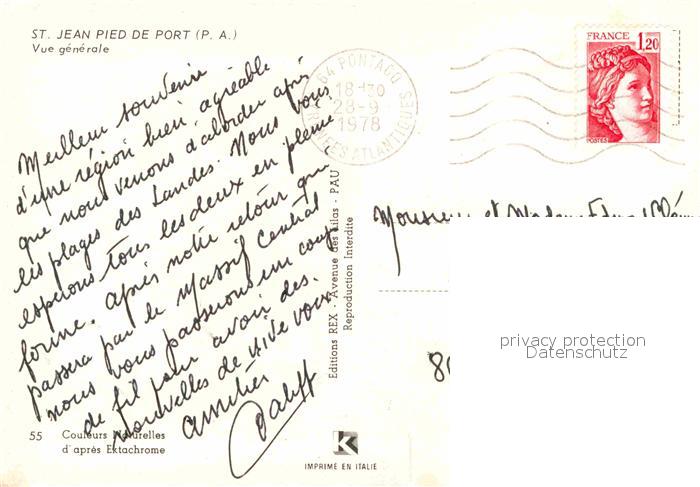 ST. JEAN PIED DE PORT (P. A.)
Vue générale
Meilleur souvenir
d'une région bien agréable
que nous venons d'aborder après
les plages des Landes. Nous vous
espérons tous les deux en pleine
forme. Après notre retour qui
passera par le Massif Central
nous vous passerons un coup
de fil pour avoir des
nouvelles de vive voix.
Amitiés
55 Couleurs Naturelles
d'après Ektachrome
Editions REX - Avenue des Lilas - PAU
Reproduction Interdite
K
IMPRIMÉ EN ITALIE
64 PONTACQ
18-30
28-9
1978
PYRENEES ATLANTIQUES
FRANCE 1,20
POSTES
Monsieur et Madame
privacy protection
Datenschutz